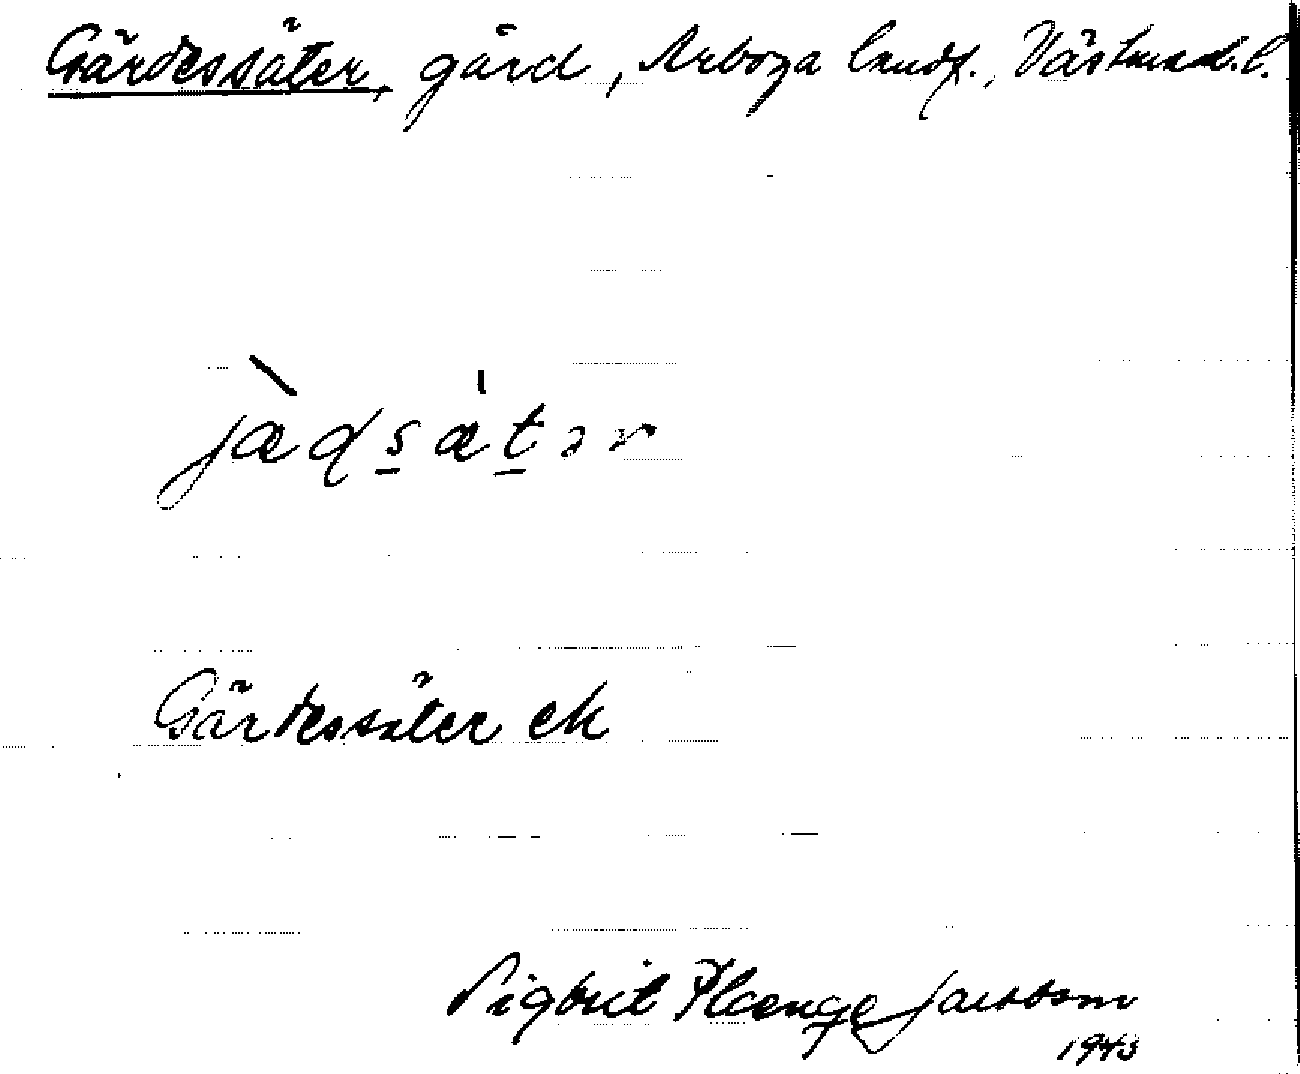 Gärdessäter, gård, Arboga landsf., Västmanl. l.
jædsætər
Gärdessäter ek
Sigbrit Plænge Jacobson
1943